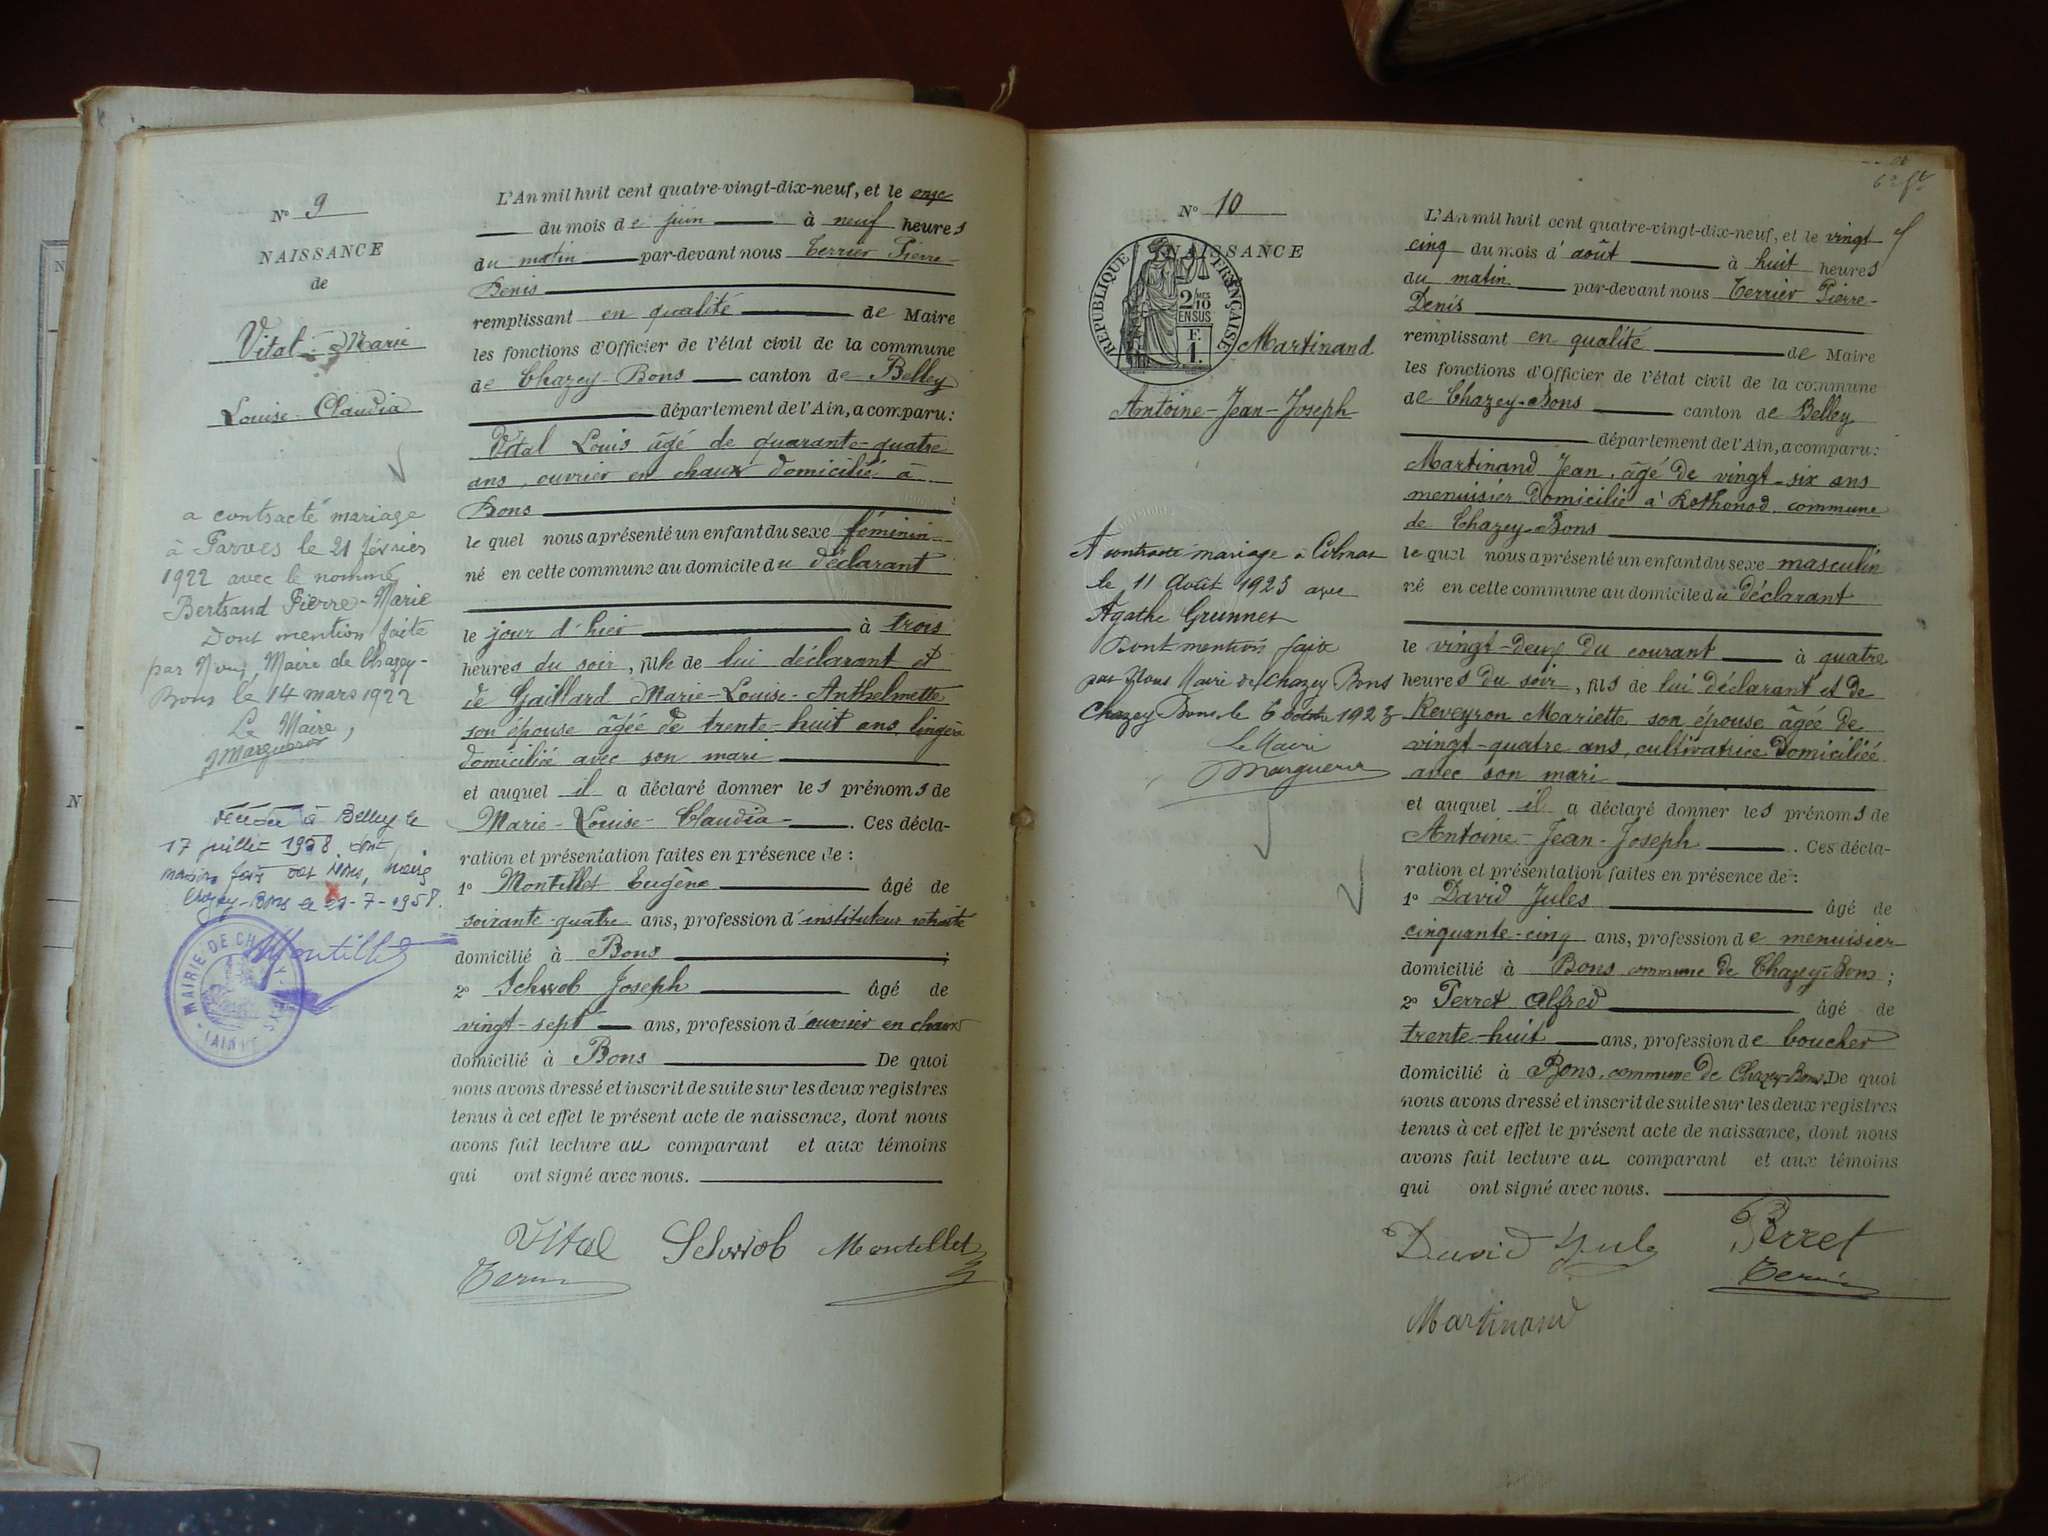 N° 9
NAISSANCE
de
Vital Marie
Louise-Claudia
a contracté mariage
à Parves le 21 février
1922 avec le nommé
Bertrand Pierre-Marie
Dont mention faite
par Nous, Maire de Chazey-
Bons le 14 mars 1922
Le Maire,
Marguerer
à Belley le
17 juillet 1958 dont
Chazey-Bons le 21-7-1958.
Montillet
MAIRIE DE CHAZEY-BONS
(AIN)
L'An mil huit cent quatre-vingt-dix-neuf, et le onze
du mois de juin à neuf heures
du matin par-devant nous Terrier Pierre-
Denis
remplissant en qualité de Maire
les fonctions d'Officier de l'état civil de la commune
de Chazey-Bons canton de Belley
département de l'Ain, a comparu:
Vital Louis âgé de quarante-quatre
ans, ouvrier en chaux domicilié à
Bons
le quel nous a présenté un enfant du sexe féminin
né en cette commune au domicile du déclarant
le jour d'hier à trois
heures du soir, fille de lui déclarant et
de Gaillard Marie-Louise-Anthelmette
son épouse âgée de trente-huit ans, lingère
domiciliée avec son mari
et auquel il a déclaré donner les prénoms de
Marie-Louise-Claudia. Ces décla-
ration et présentation faites en présence de:
1° Montillet Eugène âgé de
soixante-quatre ans, profession d'instituteur retraité
domicilié à Bons;
2° Schwob Joseph âgé de
vingt-sept ans, profession d'ouvrier en chaux
domicilié à Bons De quoi
nous avons dressé et inscrit de suite sur les deux registres
tenus à cet effet le présent acte de naissance, dont nous
avons fait lecture au comparant et aux témoins
qui ont signé avec nous.
Vital Schwob Montillet
Terrier
N° 10
NAISSANCE
RÉPUBLIQUE FRANÇAISE
2/10 MES
EN SUS
F.
1.
Martinand
Antoine-Jean-Joseph
A contracté mariage à Colmar
le 11 Août 1923 avec
Agathe Grunner
Dont mention faite
par Nous Maire de Chazey Bons
Chazey Bons le 6 octobre 1923
Le Maire
Marguerer
6e ft
L'An mil huit cent quatre-vingt-dix-neuf, et le vingt
cinq du mois d'août à huit heures
du matin par-devant nous Terrier Pierre-
Denis
remplissant en qualité de Maire
les fonctions d'Officier de l'état civil de la commune
de Chazey-Bons canton de Belley
département de l'Ain, a comparu:
Martinand Jean, âgé de vingt-six ans
menuisier domicilié à Rothonod, commune
de Chazey-Bons
le quel nous a présenté un enfant du sexe masculin
né en cette commune au domicile du déclarant
le vingt-deux du courant à quatre
heures du soir, fils de lui déclarant et de
Reveyron Mariette son épouse âgée de
vingt-quatre ans, cultivatrice domiciliée
avec son mari
et auquel il a déclaré donner les prénoms de
Antoine-Jean-Joseph. Ces décla-
ration et présentation faites en présence de:
1° David Jules âgé de
cinquante-cinq ans, profession de menuisier
domicilié à Bons commune de Chazey-Bons;
2° Perret Alfred âgé de
trente-huit ans, profession de boucher
domicilié à Bons, commune de Chazey-Bons De quoi
nous avons dressé et inscrit de suite sur les deux registres
tenus à cet effet le présent acte de naissance, dont nous
avons fait lecture au comparant et aux témoins
qui ont signé avec nous.
David Jules Perret
Terrier
Martinand